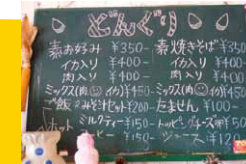 どんぐり
素お好み ¥350- 素焼きそば ¥350
イカ入り ¥400- イカ入り ¥400-
肉入り ¥400- 肉入り ¥400-
ミックス(肉イカ) ¥450- ミックス(肉イカ) ¥450
ご飯&みそ汁セット ¥200- たません ¥100-
ホット ミルクティー ¥150- ¥50
コーヒー ¥150- ジュース ¥120